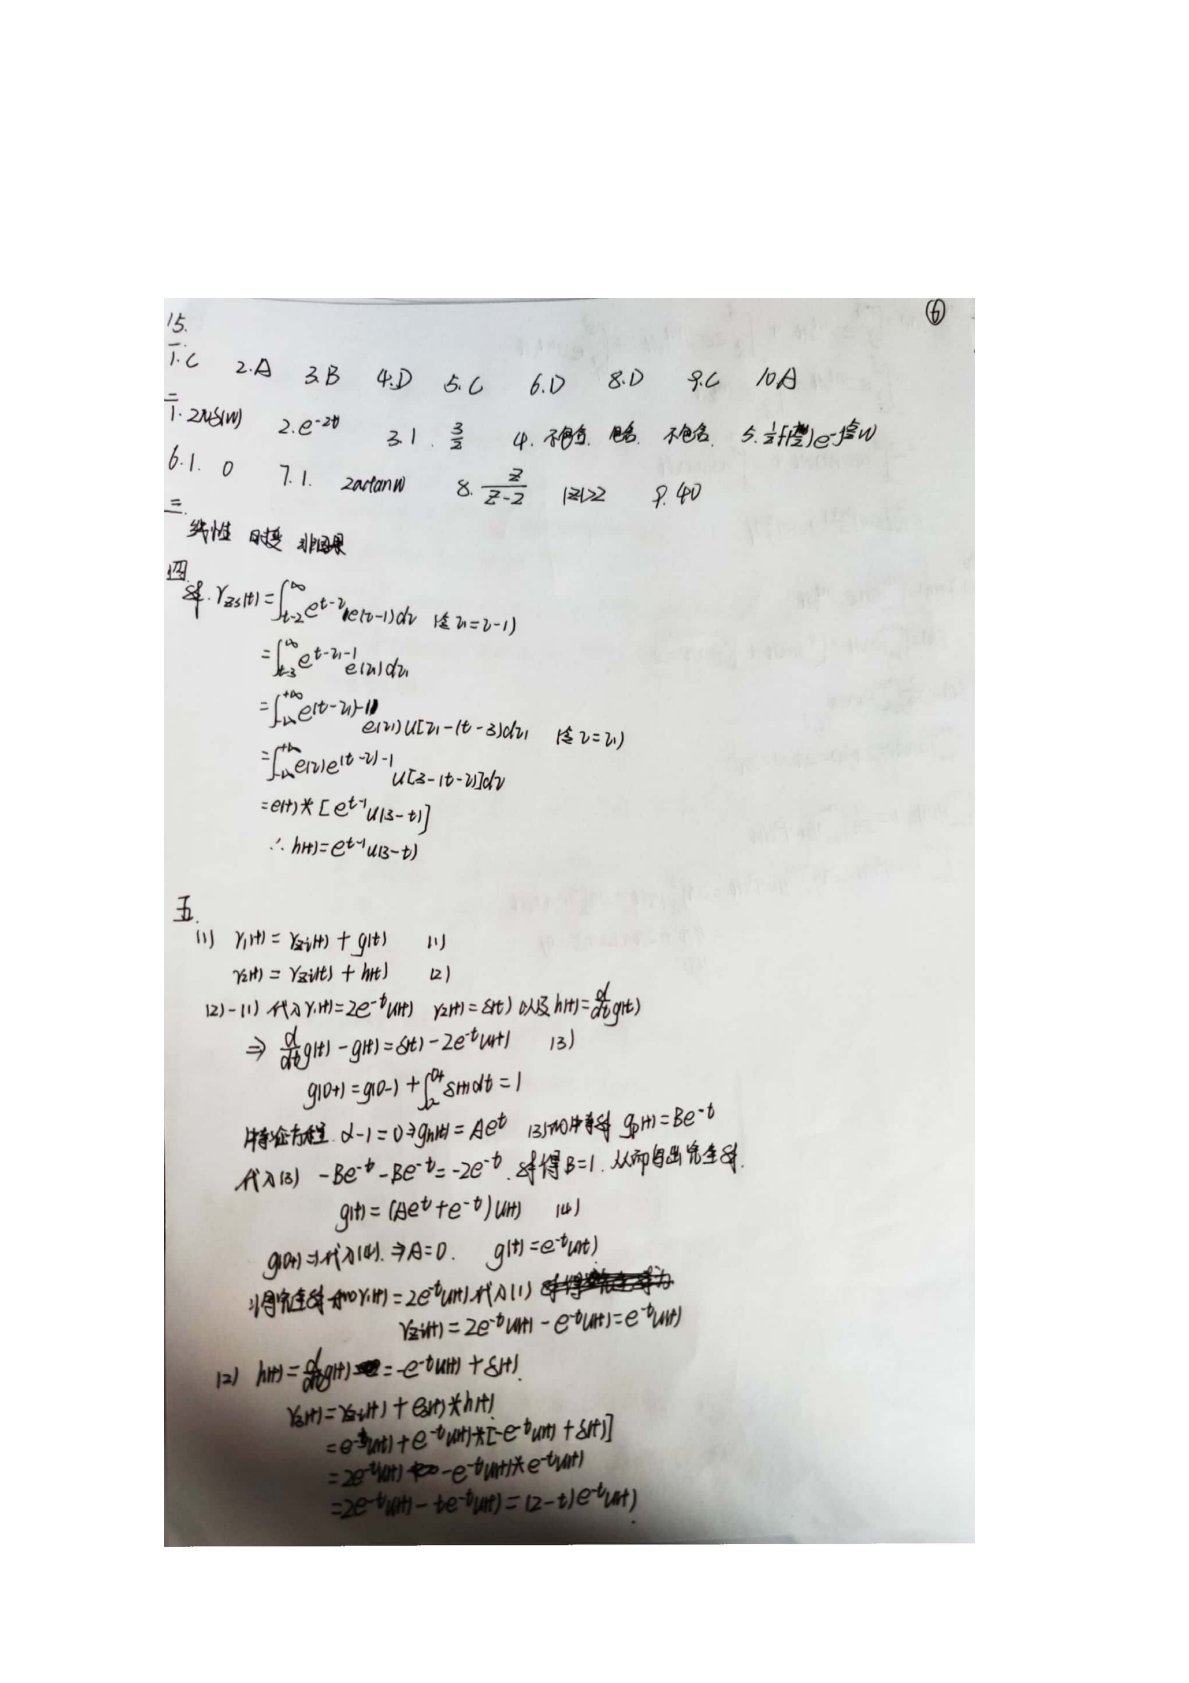 ⑥
15.
一.
1.C 2.A 3.B 4.D 5.C 6.D 8.D 9.C 10A
二
1.2πδ(w) 2.e^{-2t} 3.1. 3/2 4. 不包含. 包含. 不包含. 5.
6.1. 0 7.1. 2arctanw 8. z/(z-2) |z|>2 9.40
三.
线性 时变 非因果
四.
解. r_{zs}(t)=∫_{t-2}^{∞}e^{t-τ}e(τ-1)dτ (令τ₁=τ-1)
=∫_{t-3}^{∞}e^{t-τ₁-1}e(τ₁)dτ₁
=∫_{-∞}^{+∞}e^{(t-τ₁)-1}e(τ₁)u[τ₁-(t-3)dτ₁ (令τ=τ₁)
=∫_{-∞}^{+∞}e(τ)e^{(t-τ)-1}u[3-(t-τ)]dτ
=e(t)*[e^{t-1}u(3-t)]
∴h(t)=e^{t-1}u(3-t)
五.
(1) r₁(t)=r_{zi}(t)+g(t) (1)
r₂(t)=r_{zi}(t)+h(t) (2)
(2)-(1) 代入r₁(t)=2e^{-t}u(t) r₂(t)=δ(t) 以及h(t)=d/dt g(t)
⇒ d/dt g(t)-g(t)=δ(t)-2e^{-t}u(t) (3)
g(0+)=g(0-)+∫_{0-}^{0+}δ(t)dt=1
特征方程. α-1=0⇒g_h(t)=Ae^t (3)的特解 g_p(t)=Be^{-t}
代入(3) -Be^{-t}-Be^{-t}=-2e^{-t}. 解得B=1. 从而得出完全解.
g(t)=(Ae^t+e^{-t})u(t) (4)
g(0+)=1代入(4). ⇒A=0. g(t)=e^{-t}u(t)
将完全解和r₁(t)=2e^{-t}u(t)代入(1)
r_{zi}(t)=2e^{-t}u(t)-e^{-t}u(t)=e^{-t}u(t)
(2) h(t)=d/dt g(t)=-e^{-t}u(t)+δ(t).
r₃(t)=r_{zi}(t)+e₃(t)*h(t)
=e^{-t}u(t)+e^{-t}u(t)*[-e^{-t}u(t)+δ(t)]
=2e^{-t}u(t)-e^{-t}u(t)*e^{-t}u(t)
=2e^{-t}u(t)-te^{-t}u(t)=(2-t)e^{-t}u(t).